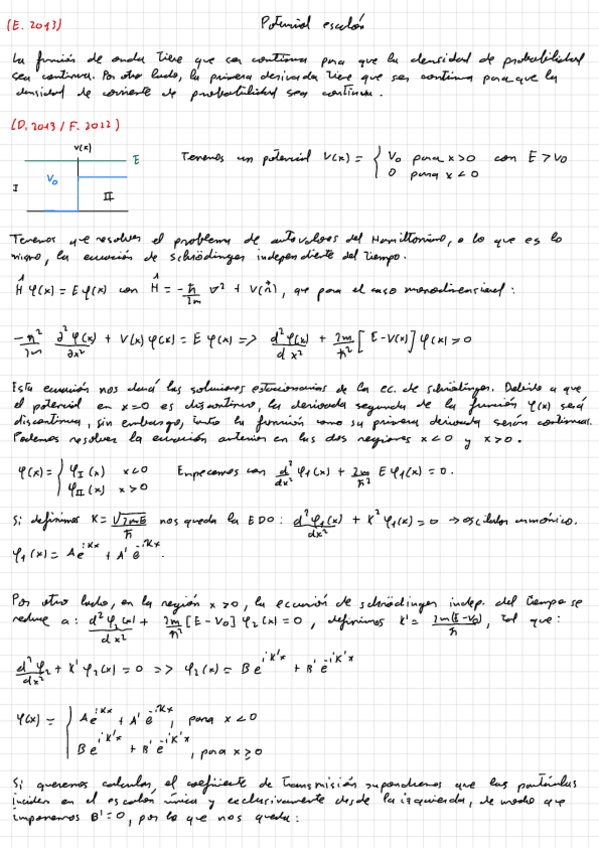 (E. 2013) Potencial escalón
La función de onda tiene que ser continua para que la densidad de probabilidad
sea continua. Por otro lado, la primera derivada tiene que ser continua para que la
densidad de corriente de probabilidad sea continua.
(D. 2013 / F. 2022)
V(x)
E
V₀
I
II
Tenemos un potencial V(x) = { V₀ para x > 0 con E > V₀
0 para x < 0
Tenemos que resolver el problema de autovalores del Hamiltoniano, o lo que es lo
mismo, la ecuación de schrödinger independiente del tiempo.
Ĥ φ(x) = E φ(x) con Ĥ = -ħ/2m ∇² + V(r̂), que para el caso monodimensional:
-ħ²/2m ∂²φ(x)/∂x² + V(x) φ(x) = E φ(x) => d²φ(x)/dx² + 2m/ħ² [E - V(x)] φ(x) = 0
Esta ecuación nos dará las soluciones estacionarias de la ec. de schrödinger. Debido a que
el potencial en x=0 es discontinuo, la derivada segunda de la función φ(x) será
discontinua, sin embargo, tanto la función como su primera derivada serán continuas.
Podemos resolver la ecuación anterior en las dos regiones x<0 y x>0.
φ(x) = { φI (x) x<0 Empecemos con d²/dx² φ₁(x) + 2m/ħ² E φ₁(x) = 0.
φII (x) x>0
Si definimos K = √2mE/ħ nos queda la EDO: d²φ₁(x)/dx² + K² φ₁(x) = 0 → oscilador armónico.
φ₁(x) = A e^{iKx} + A' e^{-iKx}.
Por otro lado, en la región x>0, la ecuación de schrödinger indep. del tiempo se
reduce a: d²φ₂(x)/dx² + 2m/ħ² [E - V₀] φ₂(x) = 0, definimos K' = 2m(E-V₀)/ħ, tal que:
d²φ₂/dx² + K' φ₂(x) = 0 => φ₂(x) = B e^{iK'x} + B' e^{-iK'x}
φ(x) = { A e^{iKx} + A' e^{-iKx}, para x<0
B e^{iK'x} + B' e^{-iK'x}, para x≥0
Si queremos calcular, el coeficiente de transmisión supondremos que las partículas
inciden en el escalón única y exclusivamente desde la izquierda, de modo que
imponemos B'=0, por lo que nos queda: